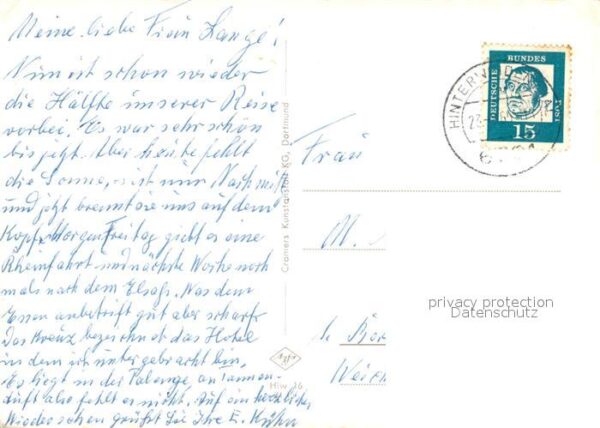 Meine liebe Frau Lange!
Nun ist schon wieder
die Hälfte unserer Reise
vorbei. Es war sehr schön
bis jetzt. Aber heute fehlt
die Sonne, es ist nur Nachmitt
und jetzt brennt sie uns auf dem
Kopf. Morgen Freitag giebt es eine
Rheinfahrt und nächste Woche noch
mals nach dem Elsaß. Was dem
Essen anbetrift gut aber scharf.
Das Kreuz bezeichnet das Hotel
in dem ich untergebracht bin.
Es liegt in der Palange, an Tannen-
duft also fehlt es nicht. Auf ein herzliches
Wiedersehen grüßt Sie Ihre E. Kühn
Cramers Kunstanstalt KG, Dortmund
Agfa
Hiw 16
HINTERW
23.
DEUTSCHE
BUNDES
POST
15
Frau
M.
1. Ber
privacy protection
Datenschutz